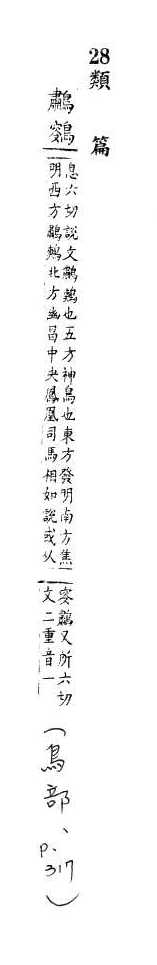 28 類篇
鷫鷞
息六切說文鷫鷞也五方神鳥也東方發明南方焦
明西方鷫鷞北方幽昌中央鳳凰司馬相如說或从
窔鷫又所六切
文二重音一
(鳥部、p.317)